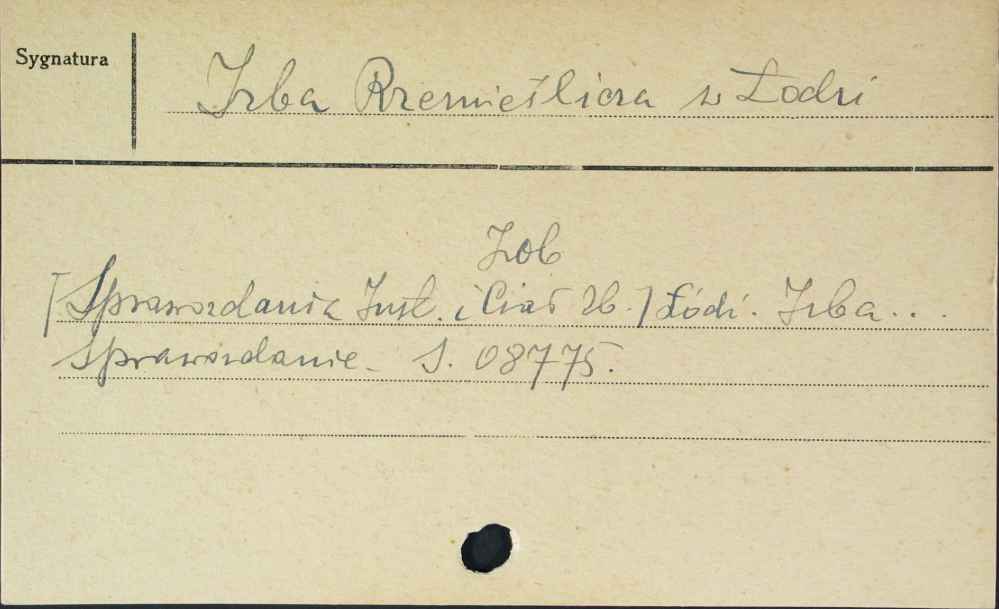 Sygnatura
Izba Rzemieślicza w Łodzi
Zob
[Sprawozdania Inst. i Ciał Zb.] Łódź. Izba...
Sprawozdanie. S. 08775.